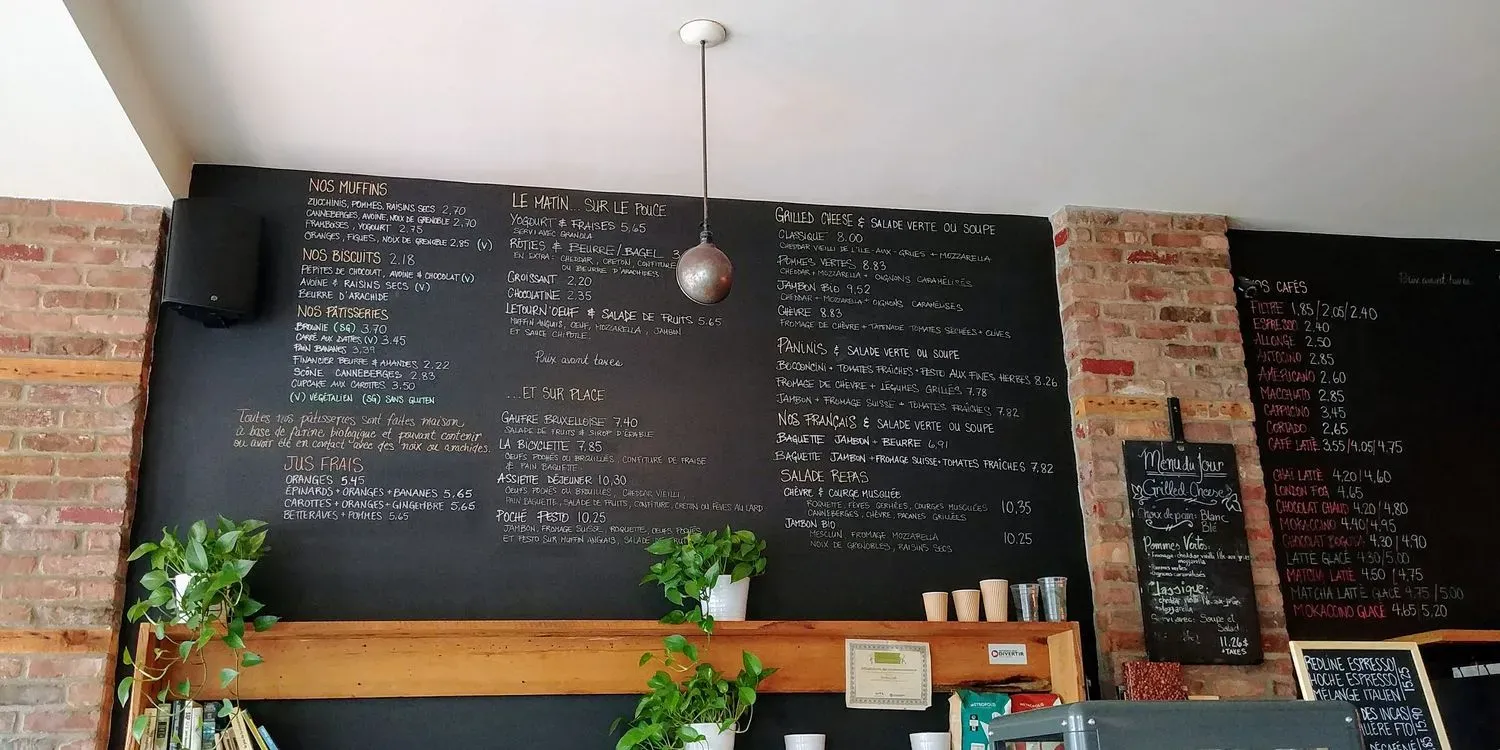 NOS MUFFINS
ZUCCHINIS, POMMES, RAISINS SECS 2,70
CANNEBERGES, AVOINE, NOIX DE GRENOBLE 2,70
FRAMBOISES, YOGOURT 2.75
ORANGES, FIGUES, NOIX DE GRENOBLE 2,85 (V)
NOS BISCUITS 2.18
PÉPITES DE CHOCOLAT, AVOINE & CHOCOLAT (V)
AVOINE & RAISINS SECS (V)
BEURRE D'ARACHIDE
NOS PÂTISSERIES
BROWNIE (SG) 3.70
CARRÉ AUX DATTES (V) 3.45
PAIN BANANES 3.39
FINANCIER BEURRE & AMANDES 2,22
SCÔNE CANNEBERGES 2,83
CUPCAKE AUX CAROTTES 3,50
(V) VÉGÉTALIEN (SG) SANS GLUTEN
Toutes nos pâtisseries sont faites maison
à base de farine biologique et peuvent contenir
ou avoir été en contact avec des noix ou arachides.
JUS FRAIS
ORANGES 5.45
ÉPINARDS + ORANGES + BANANES 5,65
CAROTTES + ORANGES + GINGEMBRE 5,65
BETTERAVES + POMMES 5.65
LE MATIN... SUR LE POUCE
YOGOURT & FRAISES 5,65
SERVI AVEC GRANOLA
RÔTIES & BEURRE/BAGEL 3
EN EXTRA: CHEDDAR, CRETON, CONFITURE
OU BEURRE D'ARACHIDES
CROISSANT 2,20
CHOCOLATINE 2,35
LETOURN'OEUF & SALADE DE FRUITS 5.65
MUFFIN ANGLAIS, OEUF, MOZZARELLA, JAMBON
ET SAUCE CHIPOTLE
Prix avant taxes
...ET SUR PLACE
GAUFRE BRUXELLOISE 7,40
SALADE DE FRUITS & SIROP D'ÉRABLE
LA BICYCLETTE 7.85
OEUFS POCHÉS OU BROUILLÉS, CONFITURE DE FRAISE
& PAIN BAGUETTE
ASSIETTE DÉJEUNER 10,30
OEUFS POCHÉS OU BROUILLÉS, CHEDDAR VIEILLI,
PAIN BAGUETTE, SALADE DE FRUITS, CONFITURE, CRETON OU FÈVES AU LARD
POCHÉ PESTO 10,25
JAMBON, FROMAGE SUISSE, ROQUETTE, OEUFS POCHÉS
ET PESTO SUR MUFFIN ANGLAIS, SALADE
GRILLED CHEESE & SALADE VERTE OU SOUPE
CLASSIQUE 8.00
CHEDDAR VIEILLI DE L'ILE-AUX-GRUES + MOZZARELLA
POMMES VERTES 8.83
CHEDDAR + MOZZARELLA + OIGNONS CARAMÉLISÉS
JAMBON BIO 9,52
CHEDDAR + MOZZARELLA + OIGNONS CARAMÉLISÉS
CHÈVRE 8.83
FROMAGE DE CHÈVRE + TAPENADE TOMATES SÉCHÉES + OLIVES
PANINIS & SALADE VERTE OU SOUPE
BOCCONCINI + TOMATES FRAÎCHES + PESTO AUX FINES HERBES 8.26
FROMAGE DE CHÈVRE + LÉGUMES GRILLÉS 7.78
JAMBON + FROMAGE SUISSE + TOMATES FRAÎCHES 7.82
NOS FRANÇAIS & SALADE VERTE OU SOUPE
BAGUETTE JAMBON + BEURRE 6,91
BAGUETTE JAMBON + FROMAGE SUISSE + TOMATES FRAÎCHES 7,82
SALADE REPAS
CHÈVRE & COURGE MUSQUÉE
ROQUETTE, FÈVES GERMÉES, COURGES MUSQUÉES 10,35
CANNEBERGES, CHÈVRE, PACANES GRILLÉES
JAMBON BIO
MESCLUN, FROMAGE MOZZARELLA 10.25
NOIX DE GRENOBLES, RAISINS SECS
Menu du Jour
Grilled Cheese
Choix de pain: Blanc
Blé
Pommes Vertes:
mozzarella
Classique:
mozzarella
Servi avec: Soupe et
Salad
11.26$
+TAXES
Prix avant taxes
NOS CAFÉS
FILTRE 1,85/2,05/2.40
ESPRESSO 2.40
ALLONGÉ 2.50
ANTOCCINO 2.85
AMERICANO 2.60
MACCHIATO 2.85
CAPPUCINO 3,45
CORTADO 2.65
CAFÉ LATTÉ 3.55/4.05/4.75
CHAI LATTÉ 4.20/4,60
LONDON FOG 4.65
CHOCOLAT CHAUD 4.20/4,80
MOKACCINO 4.40/4,95
CHOCOLAT 4.30/4,90
LATTÉ GLACÉ 4.30/5.00
MATCHA LATTÉ 4.50/4.75
MATCHA LATTÉ GLACÉ 4.75/5.00
MOKACCINO GLACÉ 4.65/5,20
DIVERTIR
METROPOLIS
REDLINE ESPRESSO
HOCHE ESPRESSO
MÉLANGE ITALIEN
DES INCAS